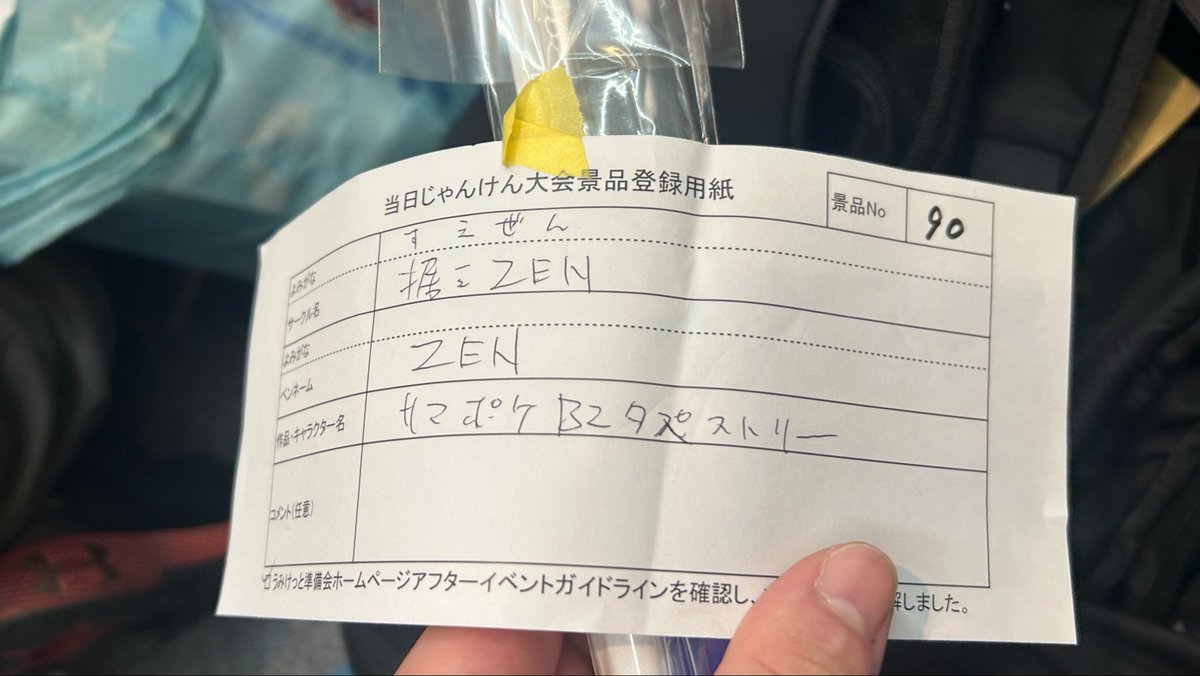 当日じゃんけん大会景品登録用紙
景品No 90
よみがな すえぜん
サークル名 据えZEN
よみがな
ペンネーム ZEN
作品・キャラクター名 サマポケ B2タペストリー
コメント(任意)
うみけっと準備会ホームページアフターイベントガイドラインを確認し、 解しました。